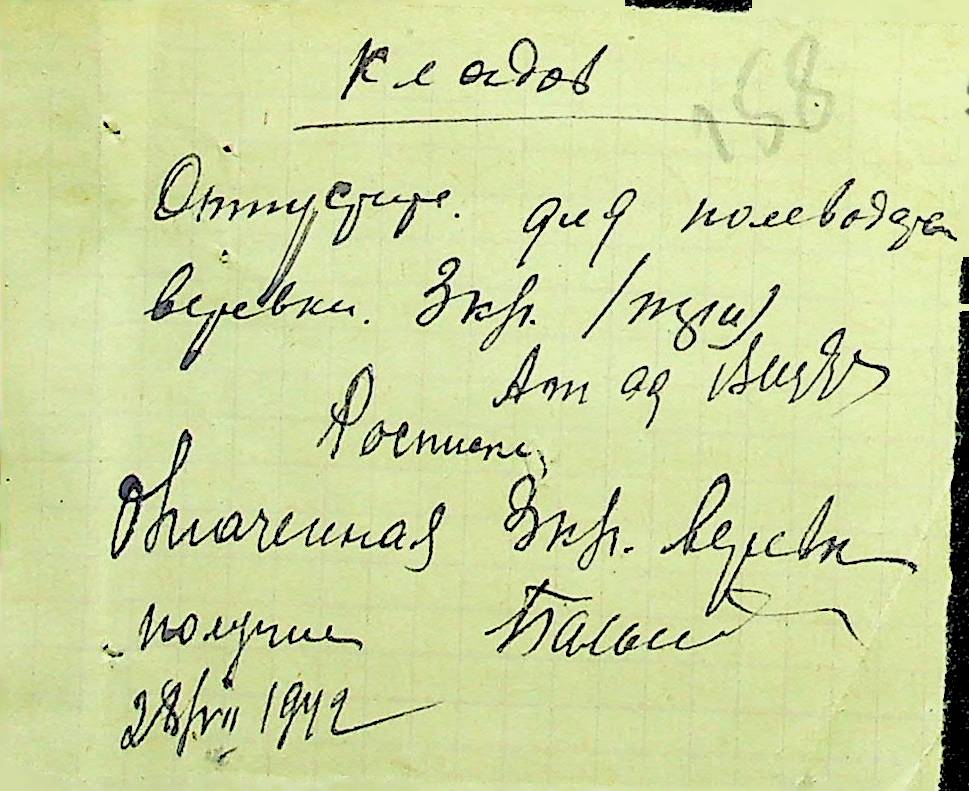 Кладов
158
Отпустите. для полеводства
веревки. 3 кгр. /три/
Расписка
Означенная 3 кгр. верев
получил
28/VII 1942